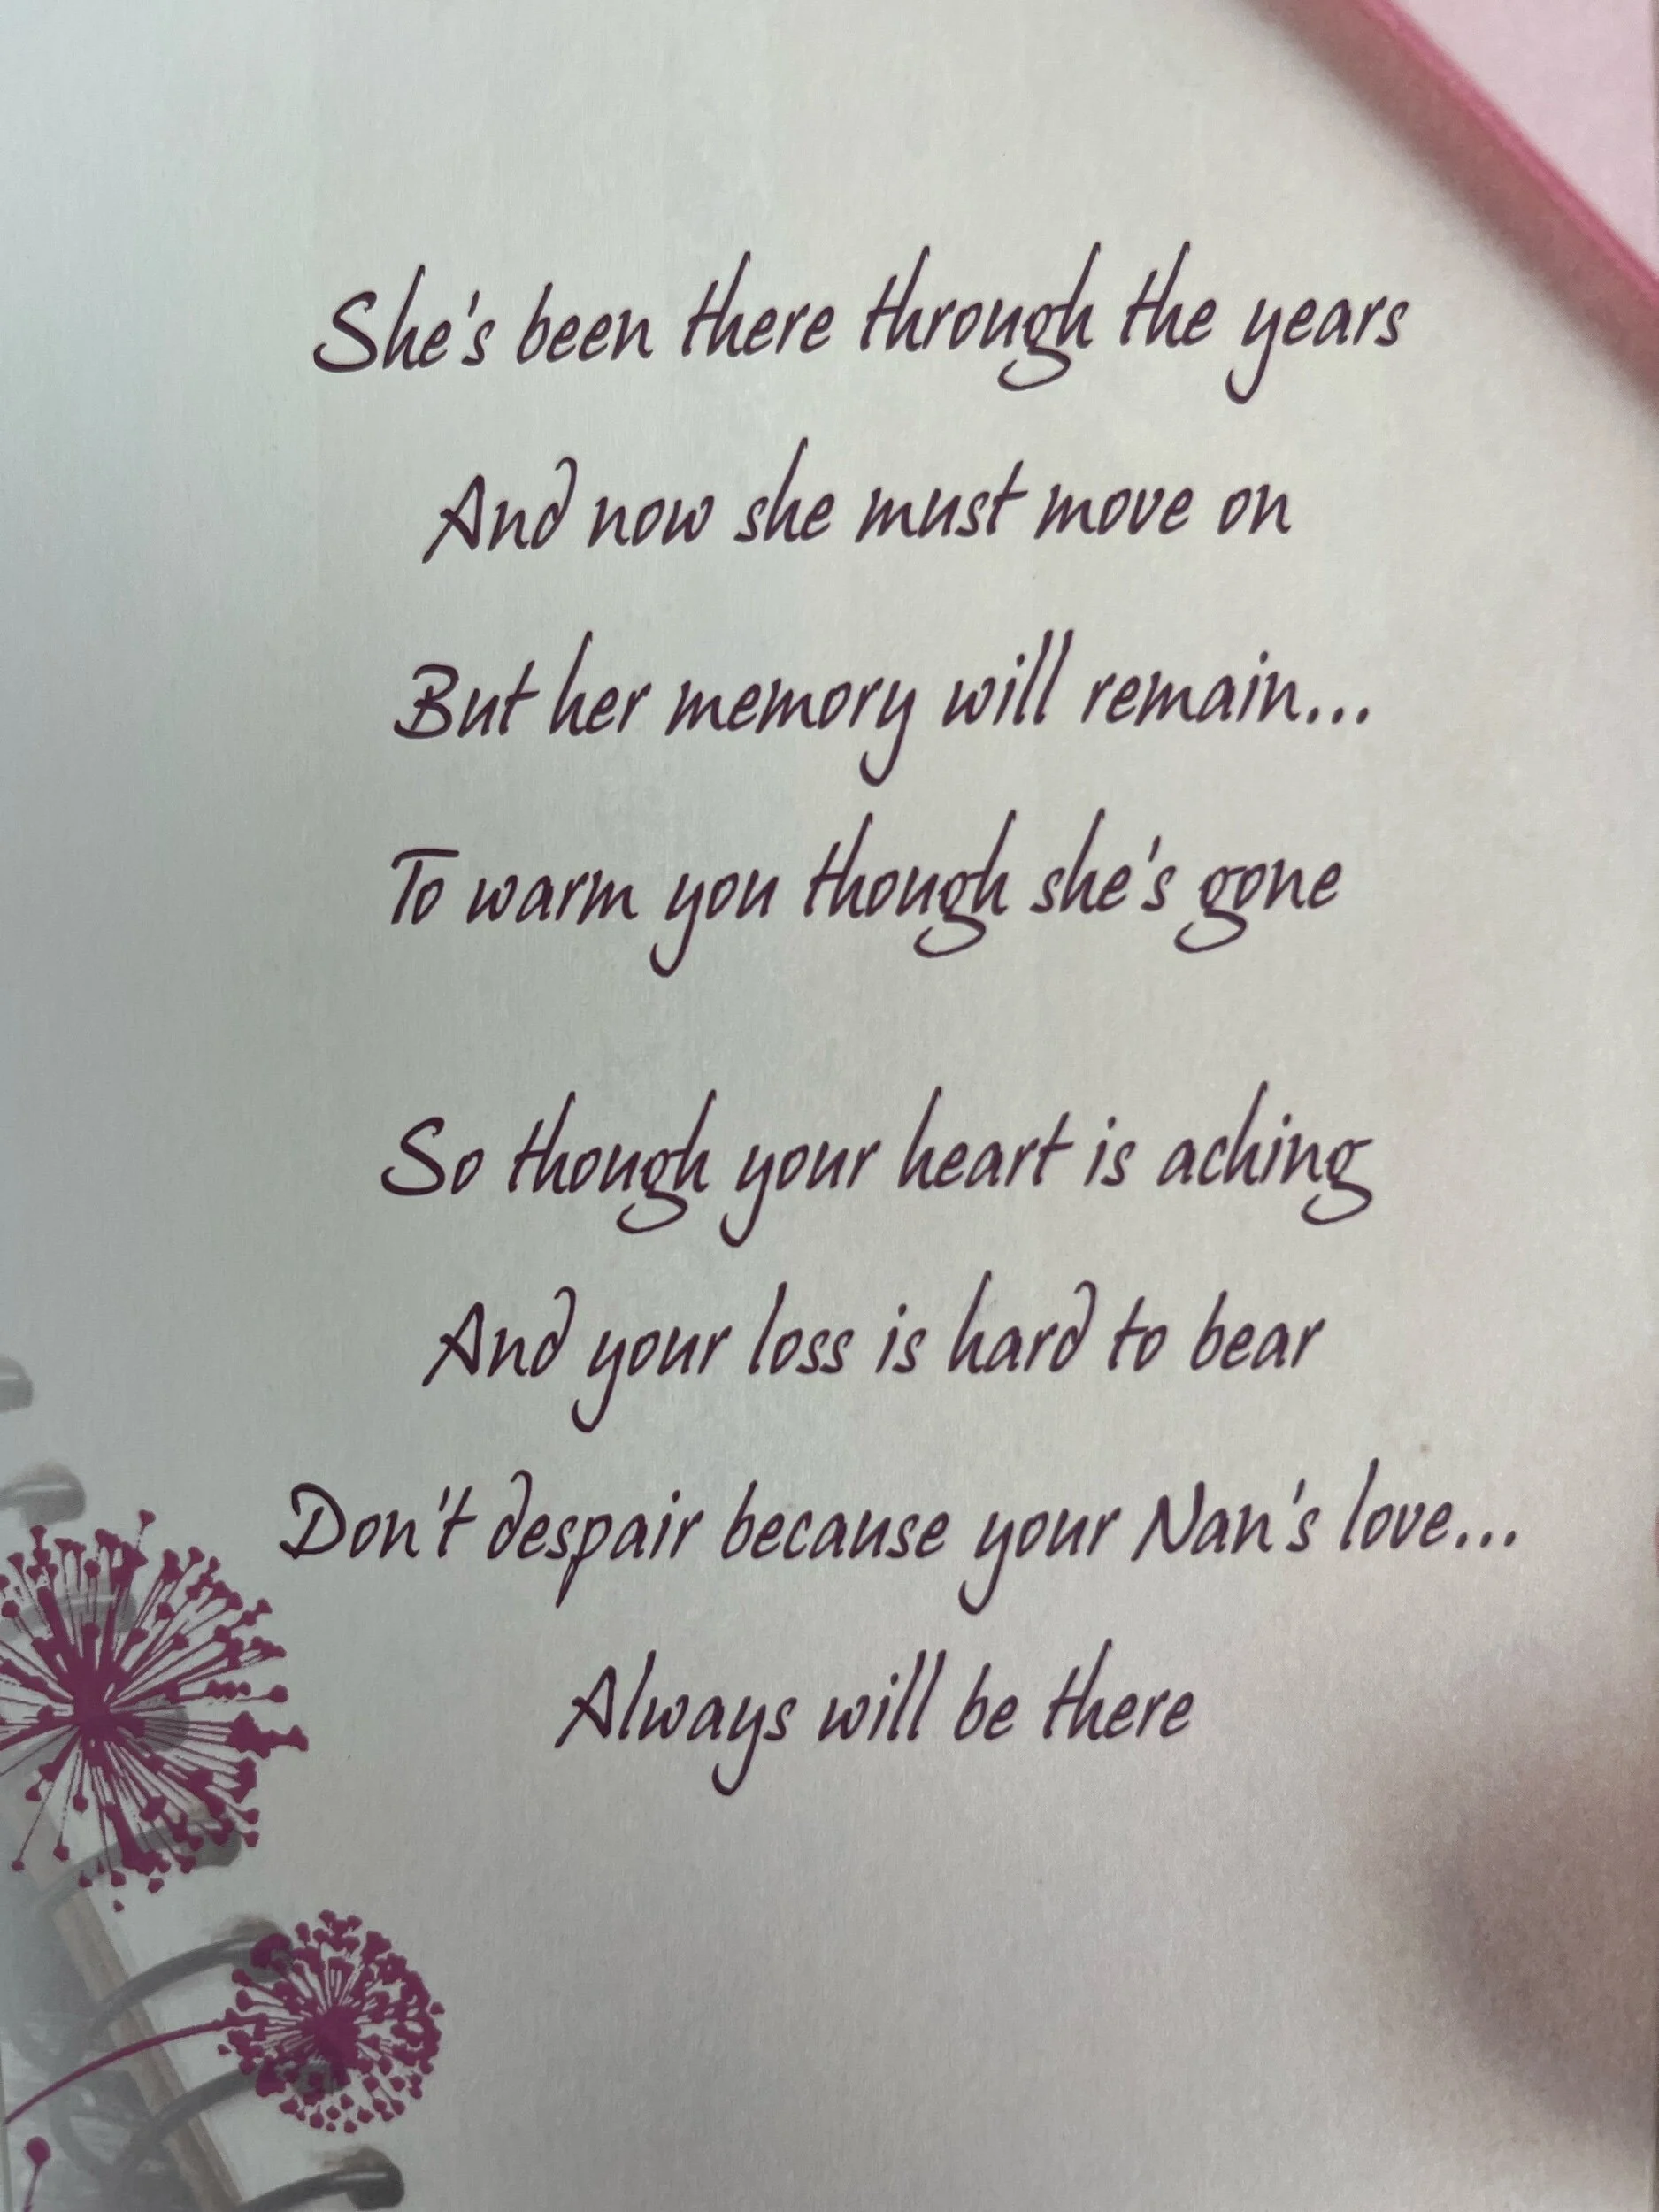 She's been there through the years
And now she must move on
But her memory will remain...
To warm you though she's gone
So though your heart is aching
And your loss is hard to bear
Don't despair because your Nan's love...
Always will be there